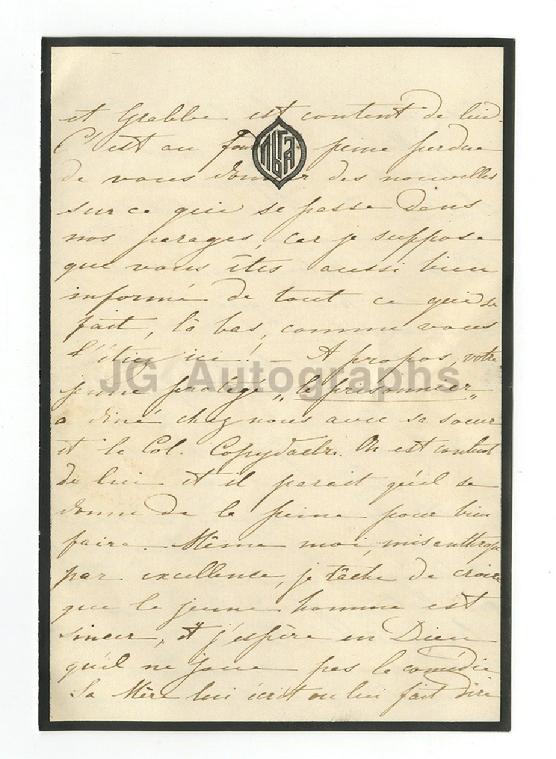 et Grabbe est content de lui.
C'est au fond peine perdue
de vous donner des nouvelles
sur ce qui se passe dans
nos parages, car je suppose
que vous êtes aussi bien
informé de tout ce qui se
fait, là bas, comme vous
l'étiez ici. — A propos, votre
jeune protégé „le prisonnier"
a diné chez nous avec sa soeur
et le Col. On est content
de lui et il parait qu'il se
donne de la peine pour bien
faire. Même moi, misanthrope
par excellence, je tâche de croire
que le jeune homme est
sincer, et j'espère en Dieu
qu'il ne joue pas la comédie
Sa Mère lui écrit ou lui fait dire
JG Autographs